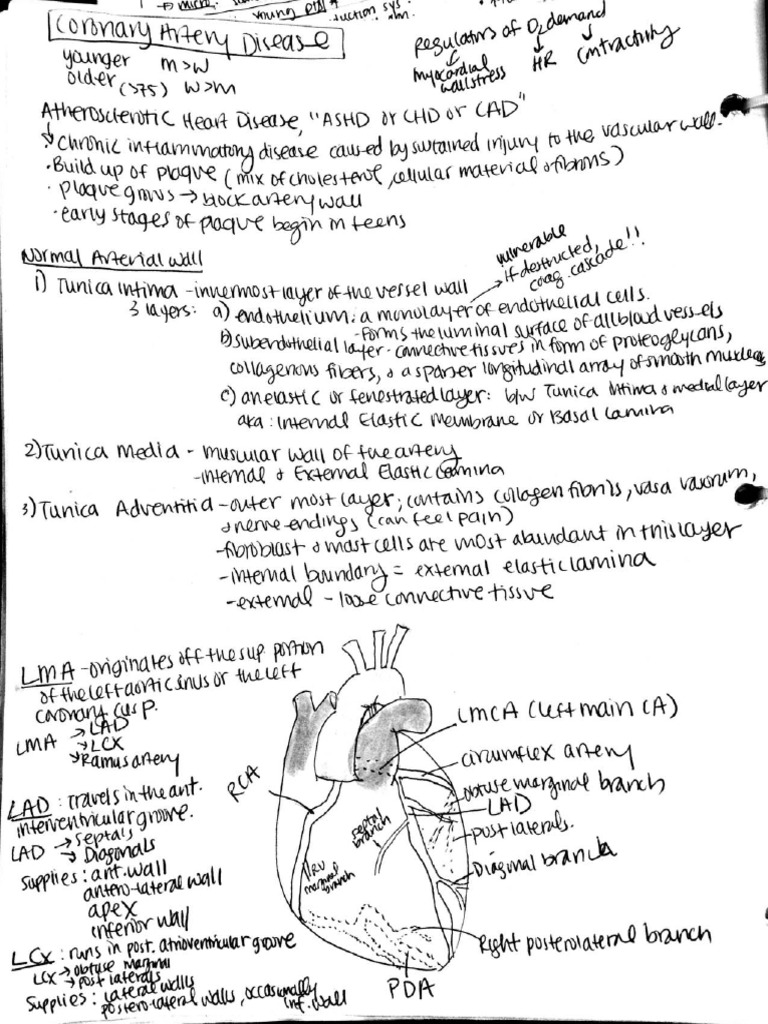 young
Coronary Artery Disease
younger m>w
older (>75) w>m
Regulators of O2 demand
myocardial wall stress
HR
contractility
Atherosclerotic Heart Disease, "ASHD or CHD or CAD"
Chronic inflammatory disease caused by sustained injury to the vascular wall.
·Build up of plaque (mix of cholesterol, cellular material & fibrons)
·plaque grows → block artery wall
·early stages of plaque begin in teens
Normal Arterial Wall
1) Tunica Intima - innermost layer of the vessel wall
vulnerable
if destructed,
coag. cascade!!
3 layers: a) endothelium: a monolayer of endothelial cells.
-forms the luminal surface of all blood vessels
b) subendothelial layer - connective tissues in form of proteoglycans,
collagenous fibers, & a sparser longitudinal array of smooth muscles
c) an elastic or fenestrated layer: b/w Tunica Intima & medial layer
aka: Internal Elastic Membrane or Basal Lamina
2) Tunica Media - muscular wall of the artery
-internal & External Elastic Lamina
3) Tunica Adventitia - outer most layer; contains collagen fibrils, vasa vasorum,
& nerve endings (can feel pain)
-fibroblast & mast cells are most abundant in this layer
-internal boundary = external elastic lamina
-external - loose connective tissue
LMA - originates off the sup portion
of the left aortic sinus or the left
coronary cusp.
LMA → LAD
→ LCX
→ Ramus artery
LAD: Travels in the ant.
interventricular groove.
LAD → septals
→ Diagonals
supplies: ant. wall
antero-lateral wall
apex
inferior wall
LCX: runs in post. atrioventricular groove
LCX → obtuse marginal
→ post laterals
Supplies: lateral walls
postero-lateral walls, occasionally
inf. wall
RCA
LMCA (left main CA)
circumflex artery
obtuse marginal branch
LAD
post laterals.
Diagonal branch
septal
branch
RV
marginal
branch
Right posterolateral branch
PDA